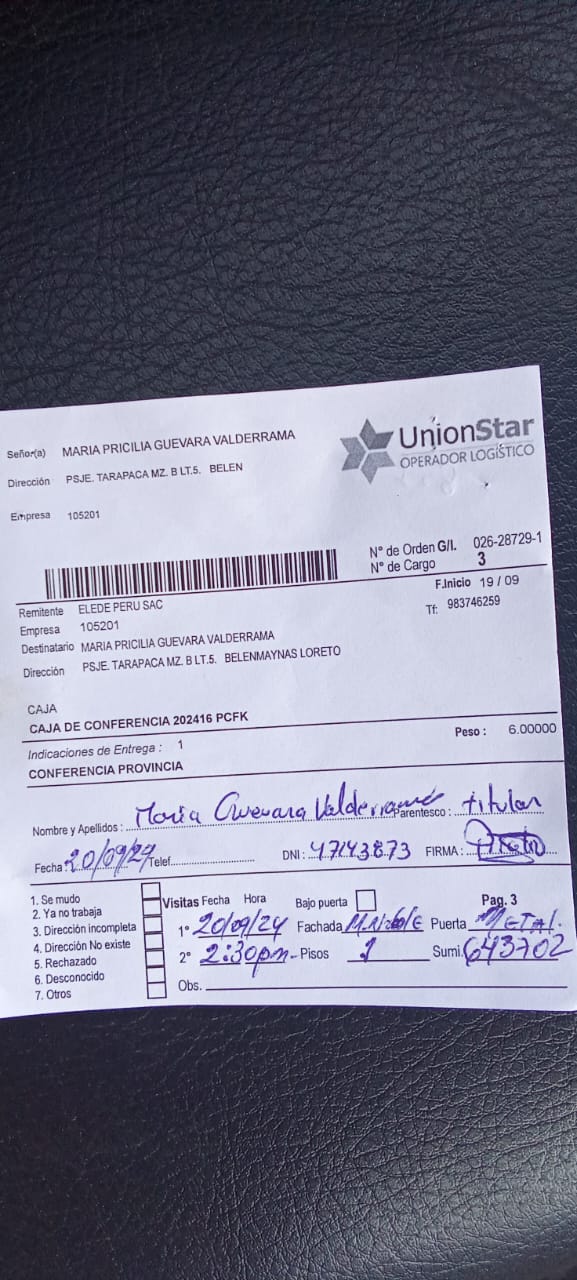 Señor(a) MARIA PRICILIA GUEVARA VALDERRAMA
UnionStar
OPERADOR LOGÍSTICO
Dirección PSJE. TARAPACA MZ. B LT.5. BELEN
Empresa 105201
N° de Orden G/I. 026-28729-1
N° de Cargo 3
F.Inicio 19 / 09
Remitente ELEDE PERU SAC
Tf: 983746259
Empresa 105201
Destinatario MARIA PRICILIA GUEVARA VALDERRAMA
Dirección PSJE. TARAPACA MZ. B LT.5. BELENMAYNAS LORETO
CAJA
CAJA DE CONFERENCIA 202416 PCFK
Peso : 6.00000
Indicaciones de Entrega : 1
CONFERENCIA PROVINCIA
Nombre y Apellidos : Maria Guevara Valderrama Parentesco : titular
Fecha : 20/09/24 Telef. DNI : 47143873 FIRMA :
1. Se mudo
2. Ya no trabaja
3. Dirección incompleta
4. Dirección No existe
5. Rechazado
6. Desconocido
7. Otros
Visitas Fecha Hora Bajo puerta Pag. 3
1° 20/09/24 Fachada Puerta METAL.
2° 2:30pm- Pisos 1 Sumi. 643702
Obs.